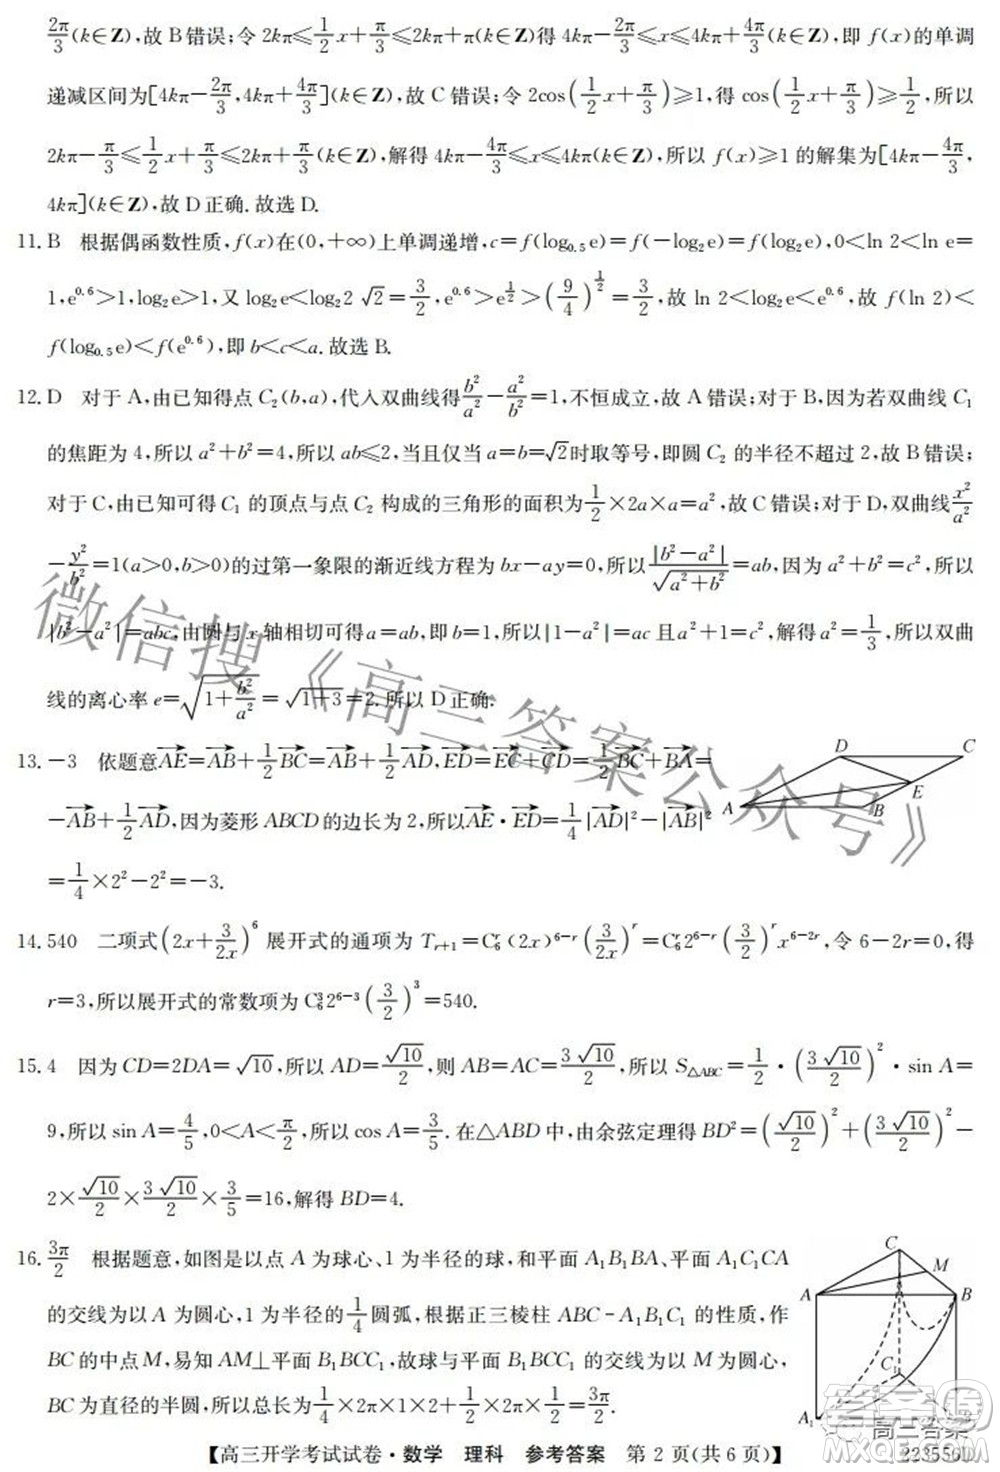 2π/3(k∈Z),故 B 错误;令 2kπ≤1/2x+π/3≤2kπ+π(k∈Z)得 4kπ−2π/3≤x≤4kπ+4π/3(k∈Z),即 f(x)的单调
递减区间为[4kπ−2π/3,4kπ+4π/3](k∈Z),故 C 错误;令2cos(1/2x+π/3)≥1,得 cos(1/2x+π/3)≥1/2,所以
2kπ−π/3≤1/2x+π/3≤2kπ+π/3(k∈Z),解得 4kπ−4π/3≤x≤4kπ(k∈Z),所以 f(x)≥1 的解集为[4kπ−4π/3,
4kπ](k∈Z),故 D 正确.故选 D.
11. B 根据偶函数性质,f(x)在(0,+∞)上单调递增,c=f(log₀.₅e)=f(−log₂e)=f(log₂e),0<ln 2<ln e=
1,e^0.6>1,log₂e>1,又 log₂e<log₂2√2=3/2,e^0.6>e^(1/2)>(9/4)^(1/2)=3/2,故 ln 2<log₂e<e^0.6,故 f(ln 2)<
f(log₀.₅e)<f(e^0.6),即 b<c<a.故选 B.
12. D 对于 A,由已知得点 C₂(b,a),代入双曲线得b²/a²−a²/b²=1,不恒成立,故 A 错误;对于 B,因为若双曲线 C₁
的焦距为 4,所以 a²+b²=4,所以 ab≤2,当且仅当 a=b=√2时取等号,即圆 C₂ 的半径不超过 2,故 B 错误;
对于 C,由已知可得 C₁ 的顶点与点 C₂ 构成的三角形的面积为1/2×2a×a=a²,故 C 错误;对于 D,双曲线x²/a²
−y²/b²=1(a>0,b>0)的过第一象限的渐近线方程为 bx−ay=0,所以|b²−a²|/√(a²+b²)=ab,因为 a²+b²=c²,所以
|b²−a²|=abc,由圆与 x 轴相切可得a=ab,即 b=1,所以|1−a²|=ac 且 a²+1=c²,解得 a²=1/3,所以双曲
线的离心率 e=√(1+b²/a²)=√(1+3)=2.所以 D 正确.
13. −3 依题意AE→=AB→+1/2BC→=AB→+1/2AD→,ED→=EC→+CD→=1/2BC→+BA→=
−AB→+1/2AD→,因为菱形 ABCD 的边长为 2,所以AE→·ED→=1/4|AD→|²−|AB→|²
=1/4×2²−2²=−3.
D C E A B
14. 540 二项式(2x+3/2x)⁶ 展开式的通项为 T_{r+1}=C₆^r(2x)^{6−r}(3/2x)^r=C₆^r2^{6−r}(3/2)^r x^{6−2r},令 6−2r=0,得
r=3,所以展开式的常数项为 C₆³2^{6−3}(3/2)³=540.
15. 4 因为 CD=2DA=√10,所以 AD=√10/2,则 AB=AC=3√10/2,所以 S△ABC=1/2·(3√10/2)²·sin A=
9,所以 sin A=4/5,0<A<π/2,所以 cos A=3/5.在△ABD 中,由余弦定理得 BD²=(√10/2)²+(3√10/2)²−
2×√10/2×3√10/2×3/5=16,解得 BD=4.
16. 3π/2 根据题意,如图是以点 A 为球心、1 为半径的球,和平面 A₁B₁BA、平面 A₁C₁CA
的交线为以 A 为圆心,1 为半径的1/4圆弧,根据正三棱柱 ABC−A₁B₁C₁ 的性质,作
BC 的中点 M,易知 AM⊥平面 B₁BCC₁,故球与平面 B₁BCC₁ 的交线为以 M 为圆心,
BC 为直径的半圆,所以长度为1/4×2π×1×2+1/2×2π×1/2=3π/2.
C M A B C₁ A₁
微信搜《高三答案公众号》
【高三开学考试试卷·数学 理科 参考答案 第 2 页(共 6 页)】
高三答案
223556D
MXQE.COM